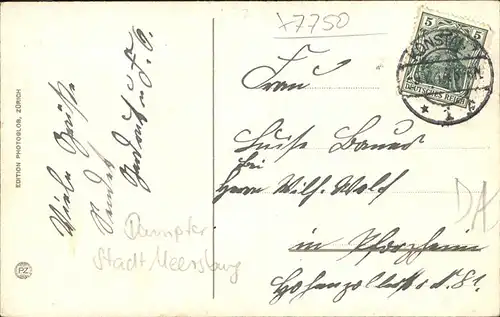 x7750
5
KONSTANZ
DEUTSCHES REICH
* 1 *
Frau
Luise Bauer
bei
Herrn Wilh. Wolf
in Pforzheim
DA
Viele Grüße
Sendet
Dampfer
Stadt Meersburg
EDITION PHOTOGLOB, ZÜRICH
PZ